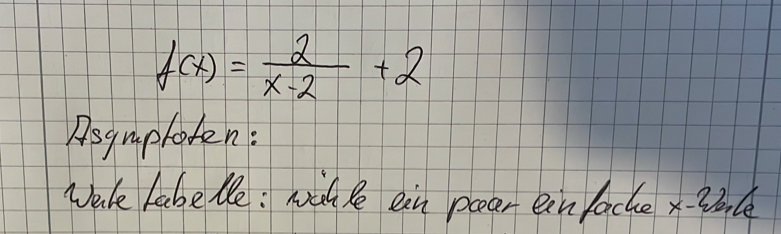 f(x) = 2/(x-2) + 2
Asymptoten:
Wertetabelle: wähle ein paar einfache x-Werte